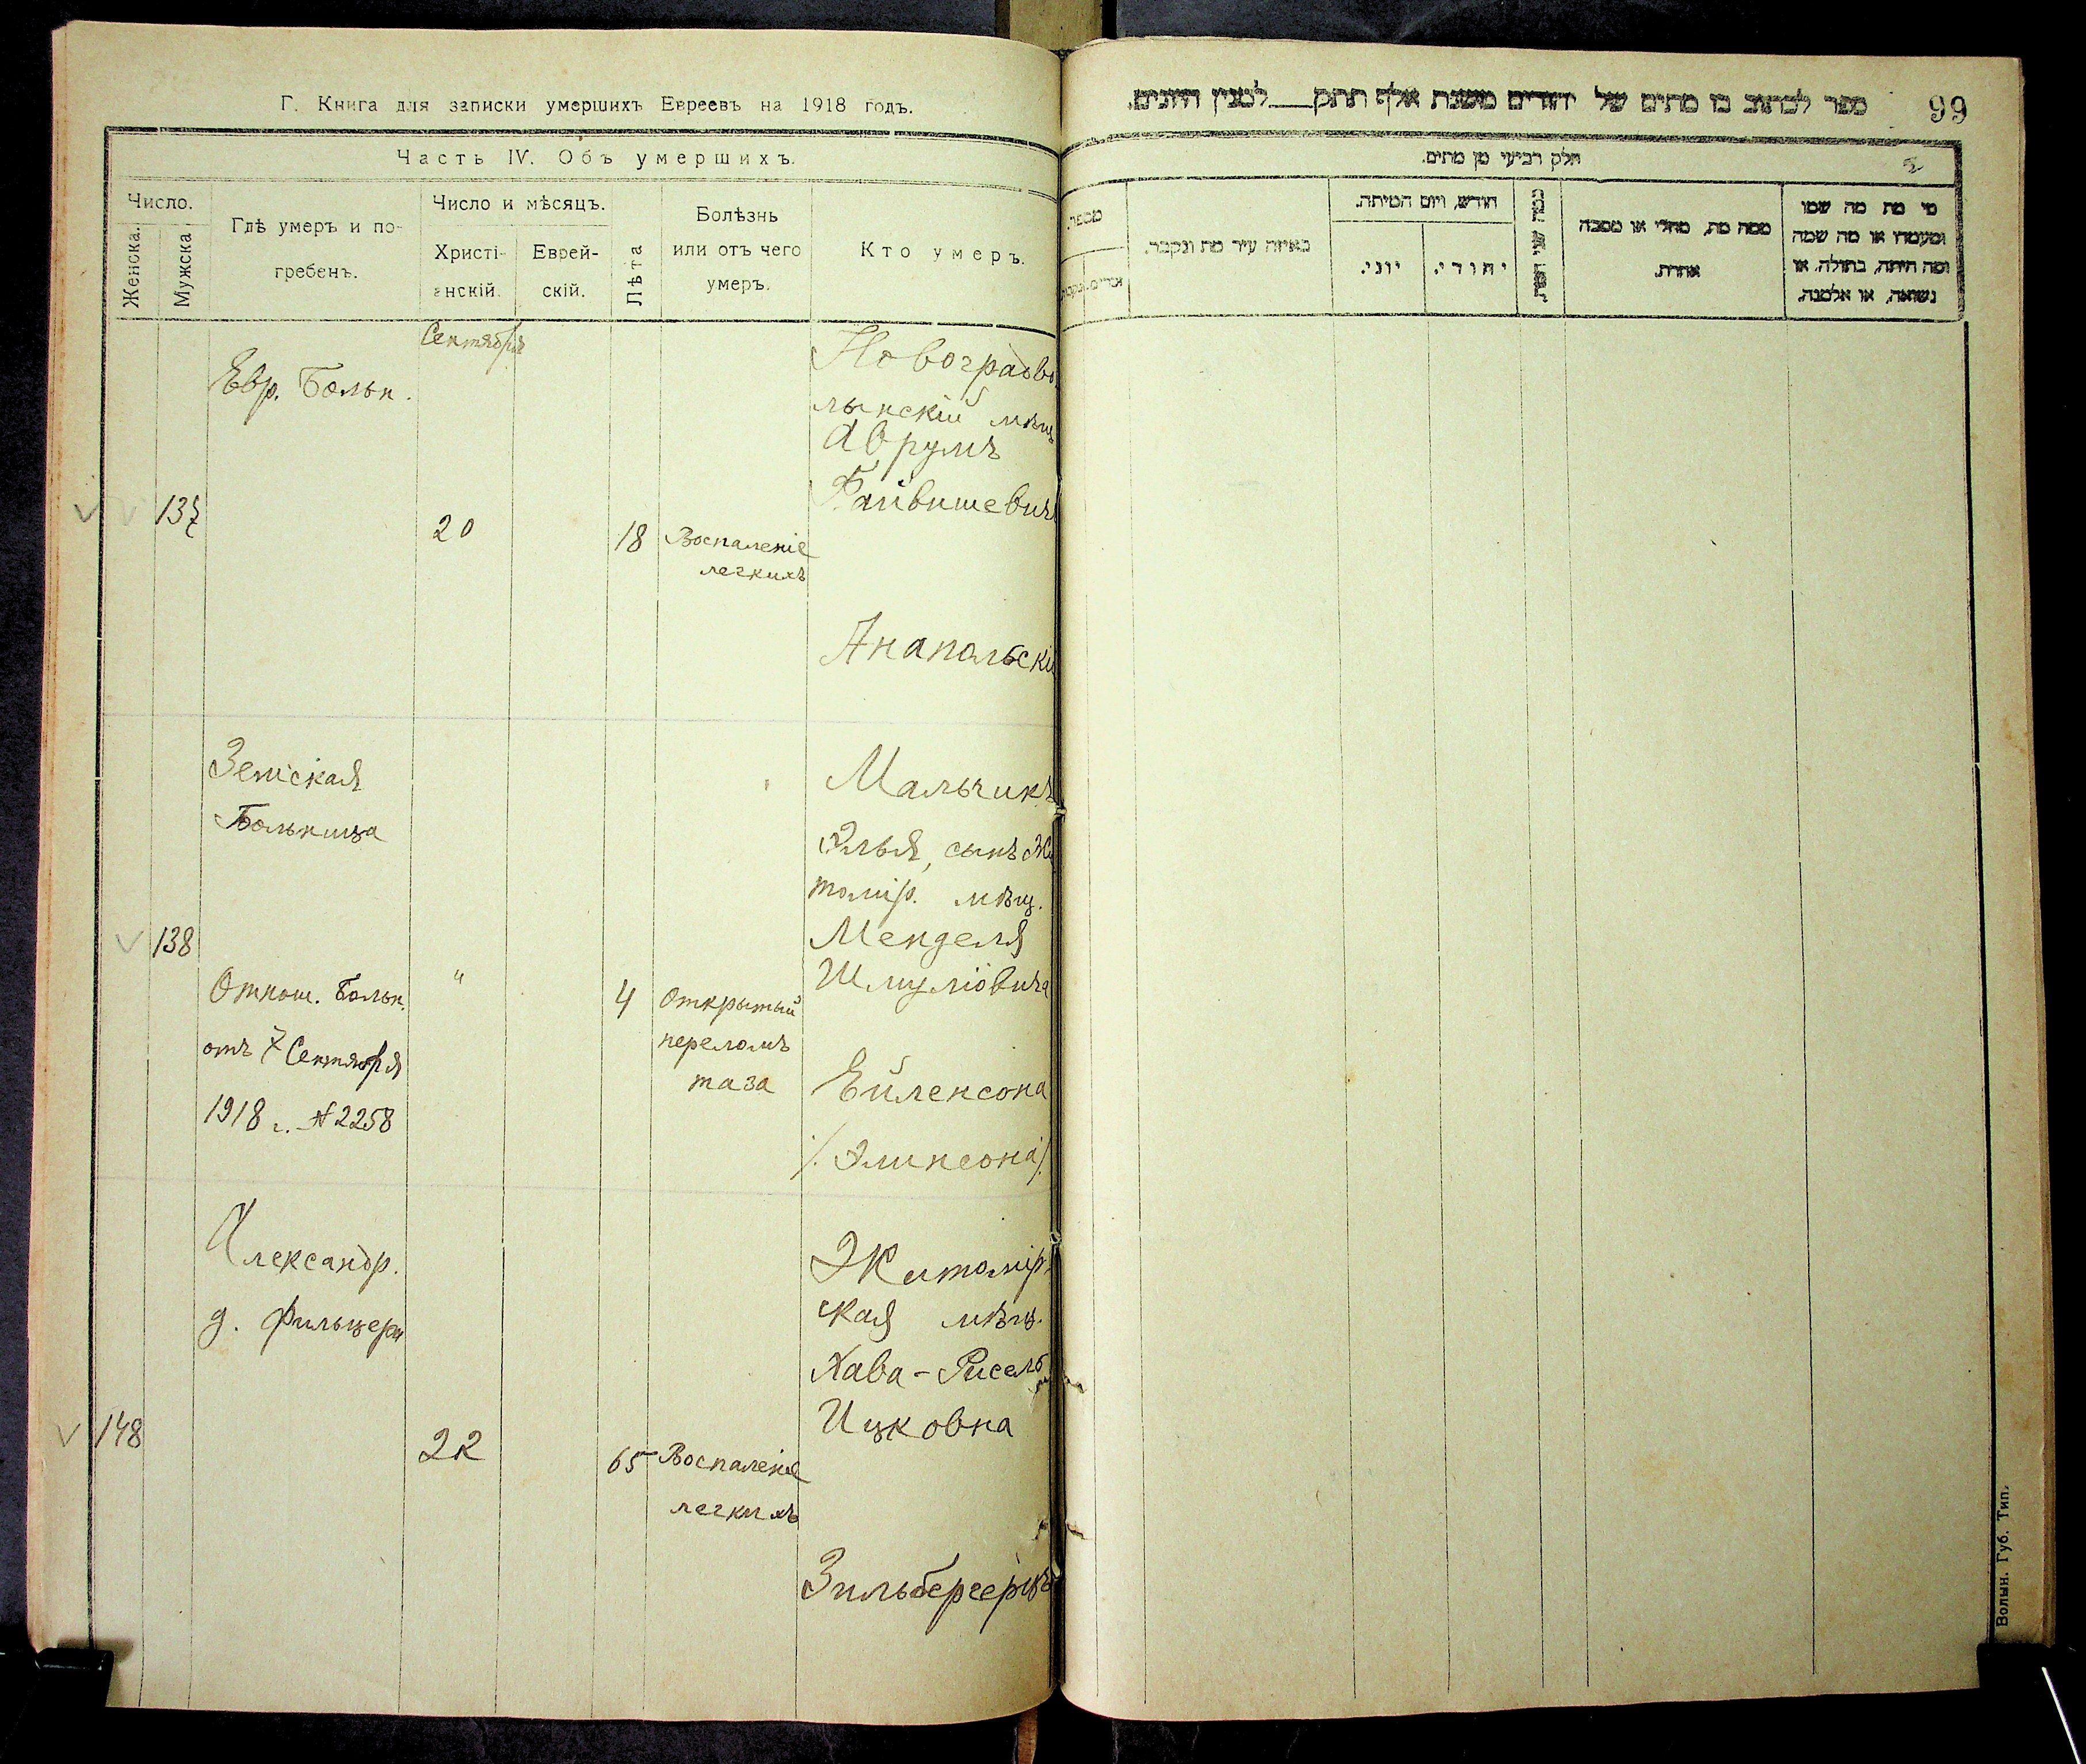 Г. Книга для записки умершихъ Евреевъ на 1918 годъ.
Часть IV. Объ умершихъ.
Число.
Женска.
Мужска
Гдѣ умеръ и по-
гребенъ.
Число и мѣсяцъ.
Христі-
анскій.
Еврей-
скій.
Лѣта
Болѣзнь
или отъ чего
умеръ.
Кто умеръ.
Сентября
137
Евр. Больн.
20
18
Воспаленіе
легкихъ
Новоградво
лынскій мѣщ
Аврумъ
Файвишевичъ
Анапольскій
138
Земская
Больница
Отнош. Больн.
отъ 7 Сентября
1918 г. № 2258
"
4
Открытый
переломъ
таза
Мальчикъ
Элья, сынъ Жи
томір. мѣщ.
Менделя
Шмуліовича
Ейленсона
/. Элинсона /.
148
Александр.
д. Фильцери
22
65
Воспаленіе
легкихъ
Житомір
ская мѣщ.
Хава-Рисель
Ицковна
Зильбергерцъ
99
ספר לכתוב בו מתים של יהודים משנת אלף תתק___למנין היונים.
חלק רביעי מן מתים.
מספר.
באיזה עיר מת ונקבר.
חודש, ויום המיתה.
יוני.
יהודי.
ממה מת, מחלי או מסבה
אחרת.
מי מת מה שמו
ומעמדו או מה שמה
ומה היתה, בתולה. או
נשואה, או אלמנה.
Волын. Губ. Тип.